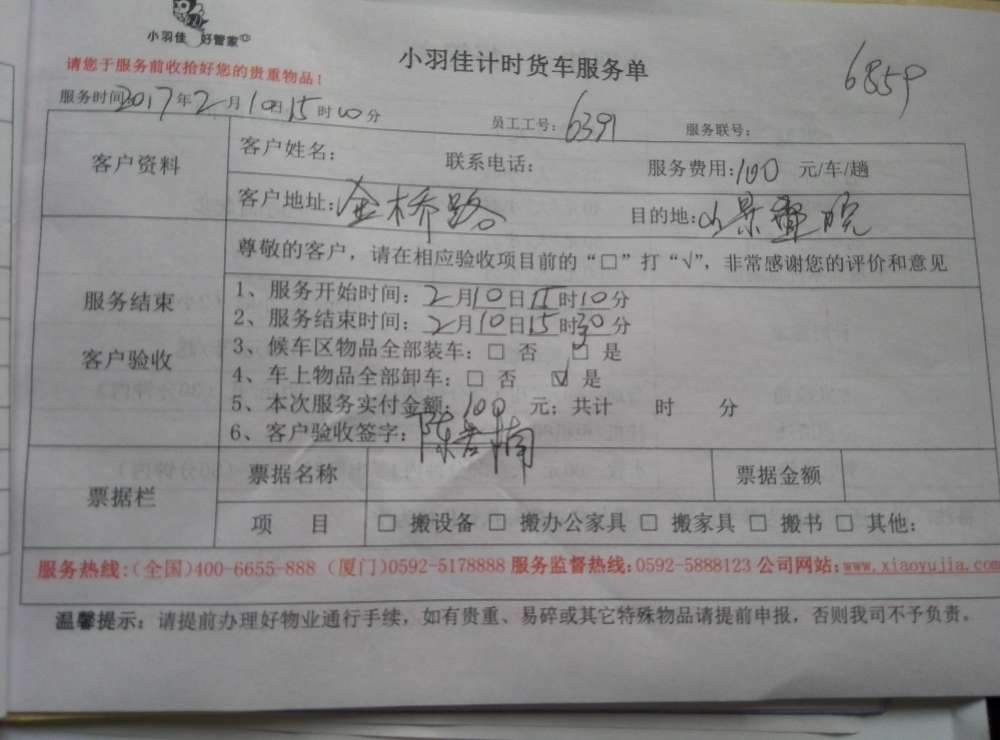 小羽佳 好管家
小羽佳计时货车服务单
6859
请您于服务前收拾好您的贵重物品！
服务时间2017年2月10日15时00分
员工工号：6391
服务联号：
客户资料
客户姓名： 联系电话： 服务费用：100 元/车/趟
客户地址：金桥路 目的地：山景
尊敬的客户，请在相应验收项目前的“□”打“√”，非常感谢您的评价和意见
服务结束
客户验收
1、服务开始时间：2月10日15时10分
2、服务结束时间：2月10日15时30分
3、候车区物品全部装车：□ 否 □ 是
4、车上物品全部卸车：□ 否 ☑ 是
5、本次服务实付金额：100 元；共计 时 分
6、客户验收签字：陈
票据栏
票据名称 票据金额
项 目 □ 搬设备 □ 搬办公家具 □ 搬家具 □ 搬书 □ 其他：
服务热线：（全国）400-6655-888（厦门）0592-5178888 服务监督热线：0592-5888123 公司网站：www.xiaoyujia.com
温馨提示：请提前办理好物业通行手续，如有贵重、易碎或其它特殊物品请提前申报，否则我司不予负责。